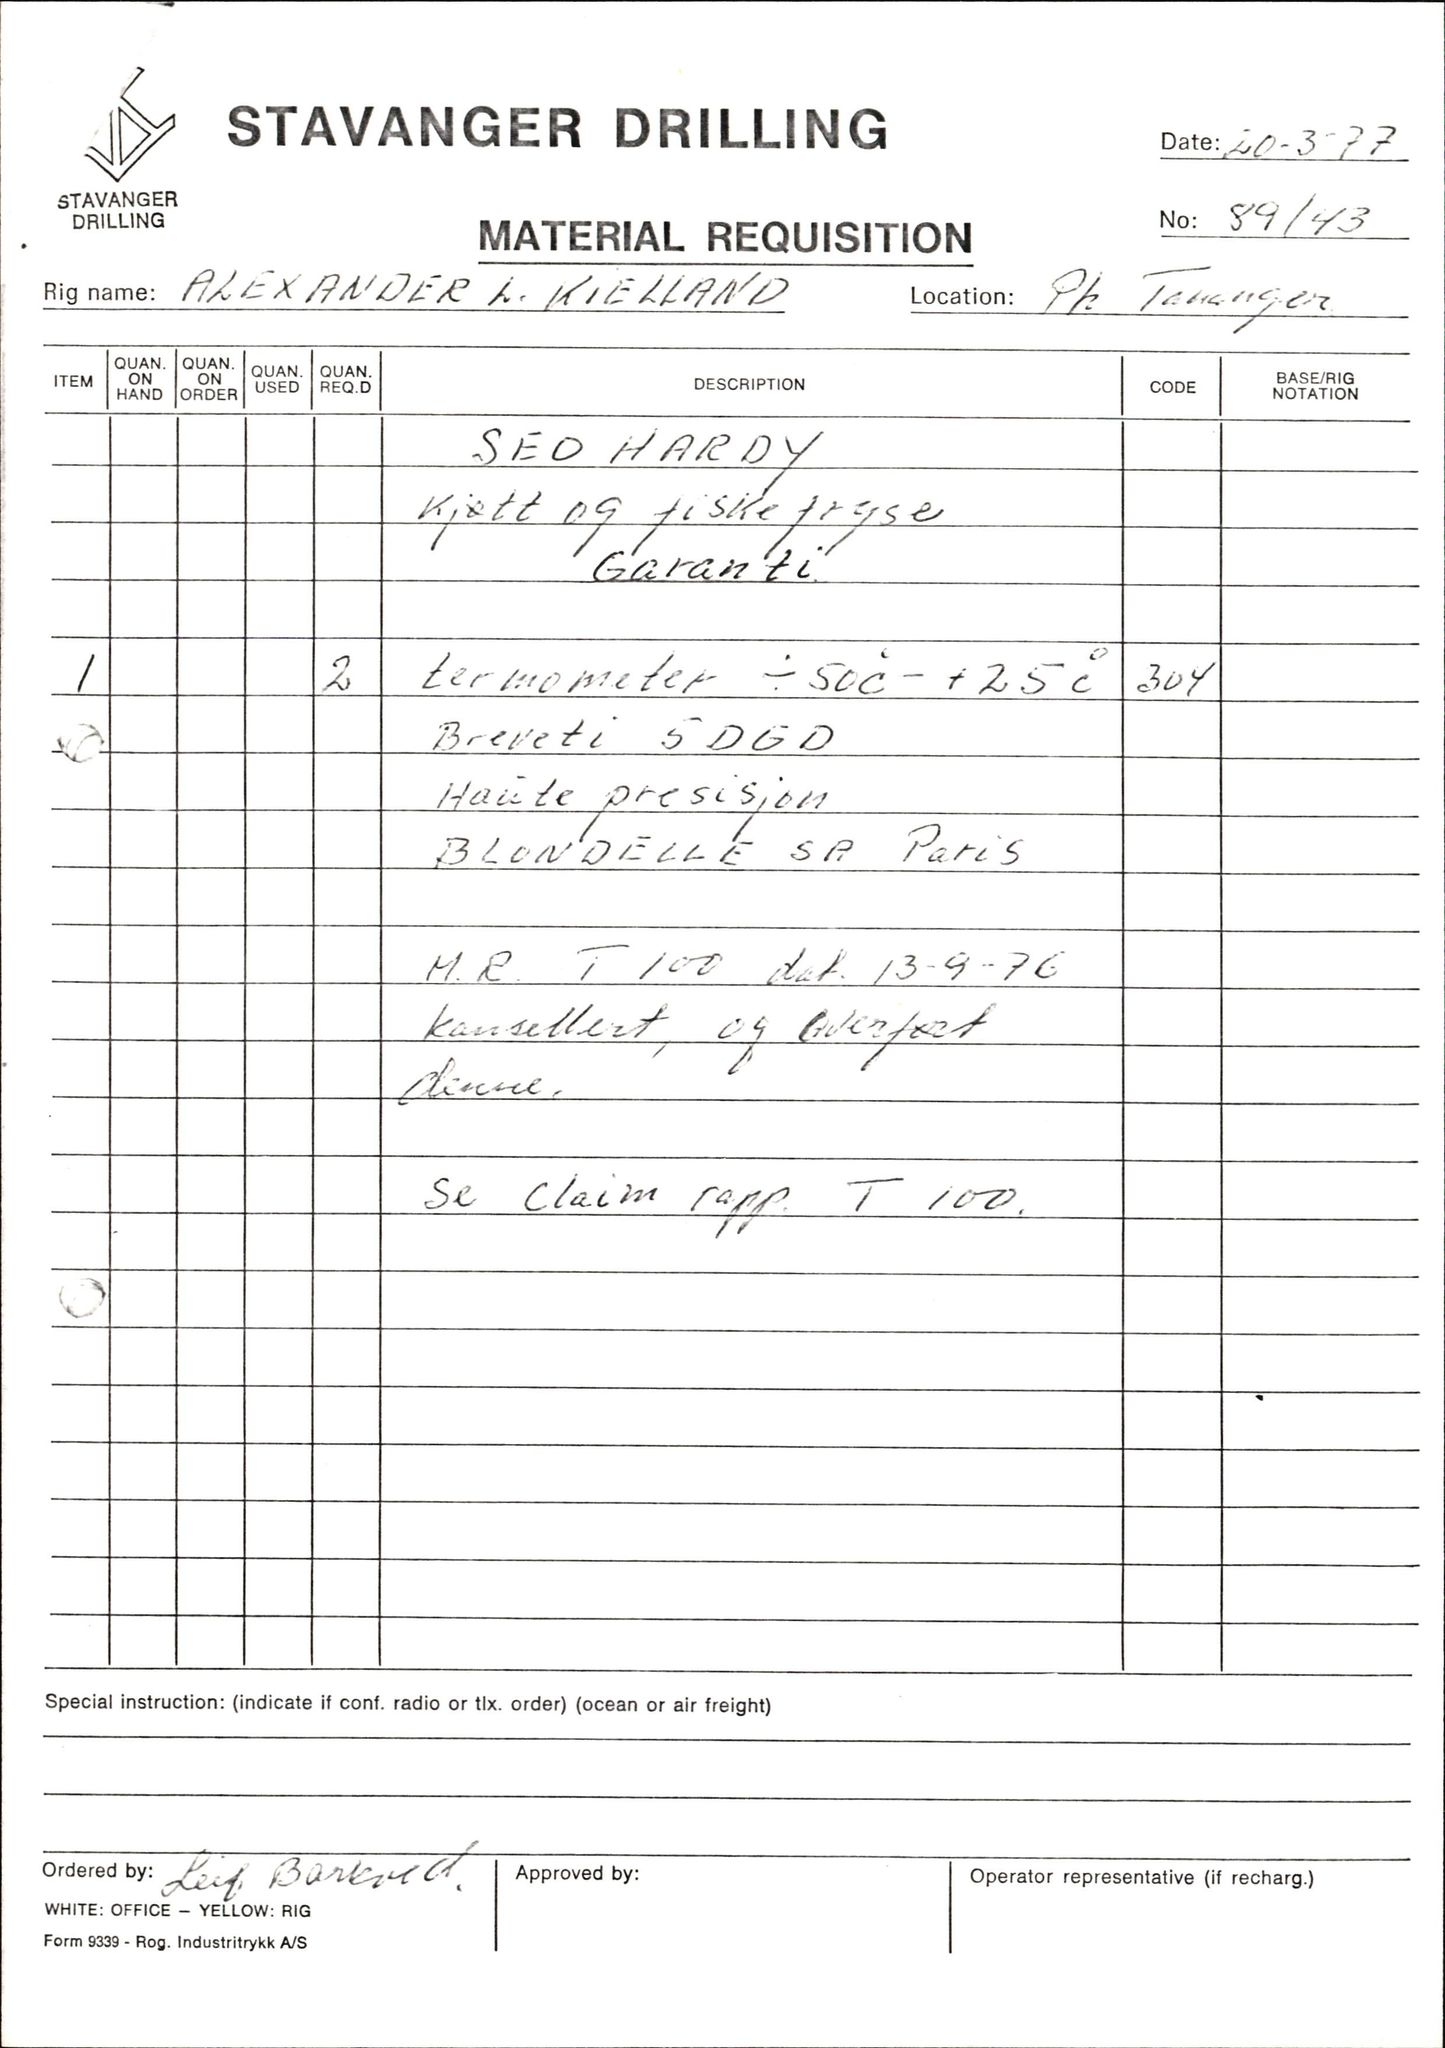 STAVANGER DRILLING
STAVANGER
DRILLING
Date: 20-3-77
No: 89/43
MATERIAL REQUISITION
Rig name: ALEXANDER L. KIELLAND Location: Ph Tananger
ITEM QUAN. ON HAND QUAN. ON ORDER QUAN. USED QUAN. REQ.D DESCRIPTION CODE BASE/RIG NOTATION
SEO HARDY
Kjøtt og fiske fryse
Garanti
1 2 termometer ÷ 50°c - + 25°c 304
Breveti 5 DGD
Haute presisjon
BLONDELLE SA Paris
M.R. T 100 dat. 13-9-76
kansellert, og overført
denne.
Se Claim rapp. T 100.
Special instruction: (indicate if conf. radio or tlx. order) (ocean or air freight)
Ordered by: Leif Barkved. Approved by: Operator representative (if recharg.)
WHITE: OFFICE – YELLOW: RIG
Form 9339 - Rog. Industritrykk A/S